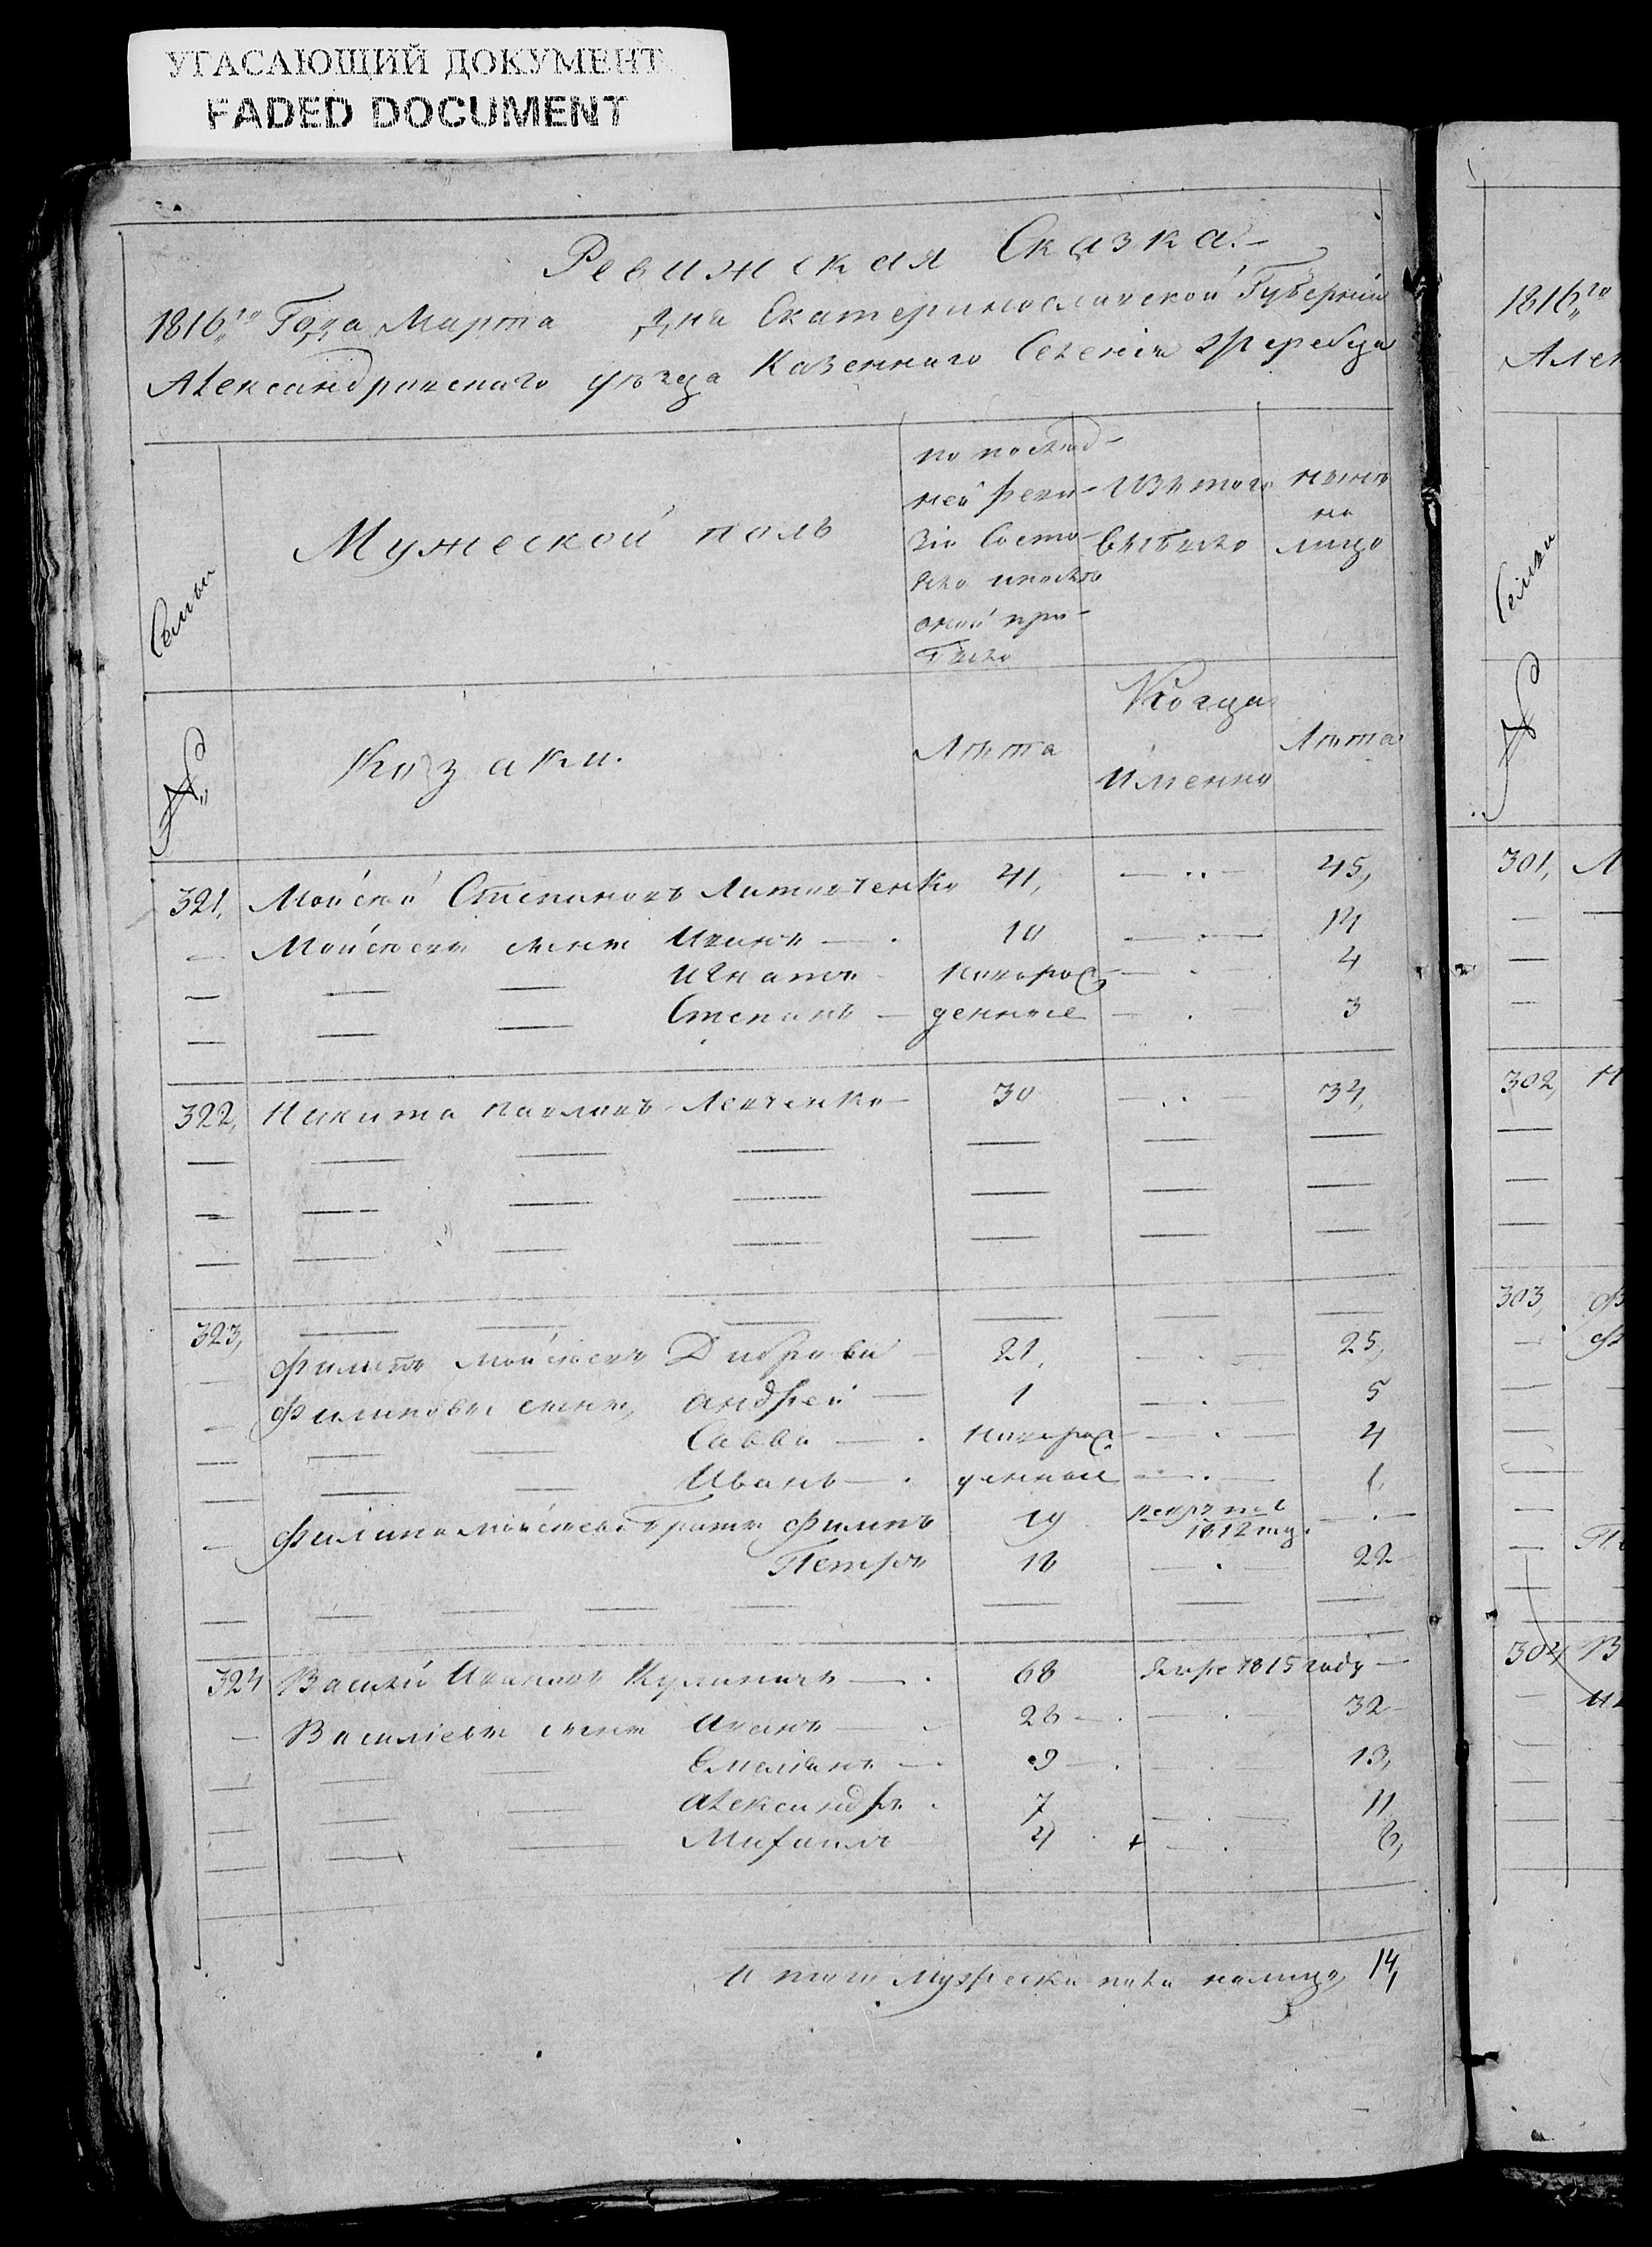 УГАСАЮЩИЙ ДОКУМЕНТ
FADED DOCUMENT
Ревижская Сказка.
1816го Года Марта дня Екатеринославской Губерніи
Александровскаго уѣзда Казеннаго Селенія Жеребца
Семьи
Мужеской полъ
по послѣд-
ней реви-
зіи состо-
яло и послѣ
оной при-
было
Изъ того
выбыло
нынѣ
на
лицо
№
Козаки.
Лѣта
Когда
именно
Лѣта
321, Мойсей Степановъ Литовченко 41, 45,
Мойсеевы сыны Иванъ 10 14
Игнатъ новорож- 4
Степанъ денные 3
322, Никита Павловъ Левченко 30 34,
323,
Филипъ Мойсеевъ Диброва 21, 25,
Филиповы сыны, Андрей 1 5
Савва новорож- 4
Иванъ денные 1,
Филипа Мойсеева братья Филипъ 19 рекрутъ в 1812 году
Петръ 18 22
324 Василій Ивановъ Кулиничъ 68 Умре 1815 году
Василіевы сыны Иванъ 28 32
Емеліанъ 9 13,
Александръ 7 11
Михаилъ 4 8,
Итого Мужеска пола налицо 14,
1816го
Алек
Семьи
№
301, М
302, Н
303, Ф
Ф
304, В